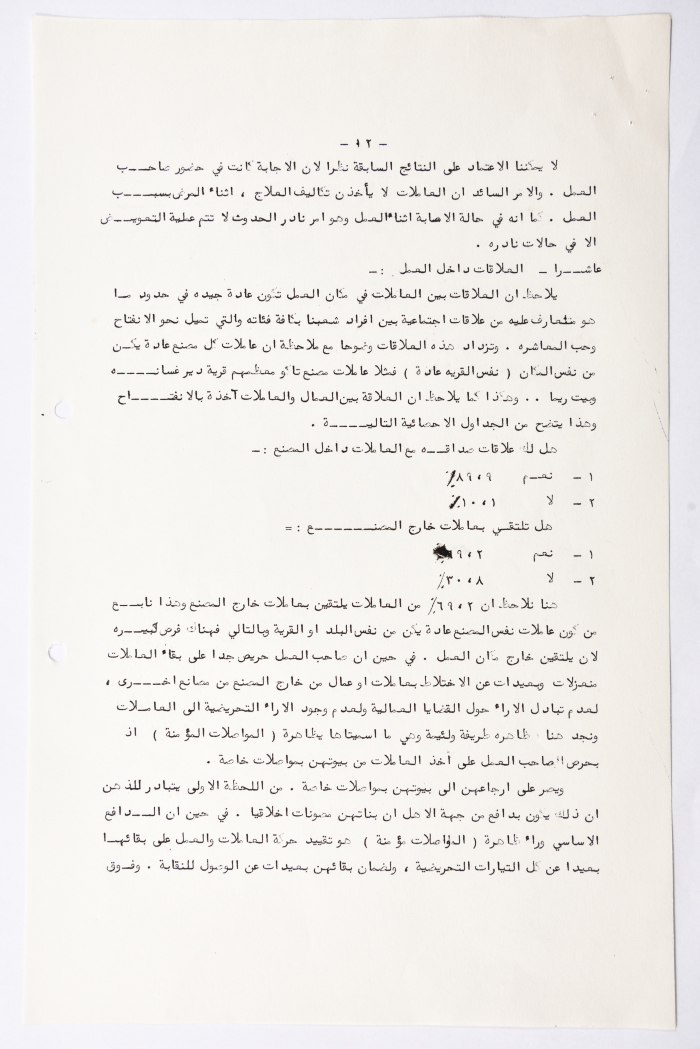 - ١٢ -
لا يمكننا الاعتماد على النتائج السابقة نظرا لان الاجابة كانت في حضور صاحـــب
العمل . والامر السائد ان العاملات لا يأخذن تكاليف العلاج ، اثناء المرض بسبـــب
العمل . كما انه في حالة الاصابة اثناء العمل وهو امر نادر الحدوث لا تتم عملية التعويـــض
الا في حالات نادره .
عاشـــرا - العلاقات داخل العمل :-
يلاحظ ان العلاقات بين العاملات في مكان العمل تكون عادة جيده في حدود مـا
هو متعارف عليه من علاقات اجتماعية بين افراد شعبنا بكافة فئاته والتي تميل نحو الانفتاح
وحب المعاشره . وتزداد هذه العلاقات وضوحا مع ملاحظة ان عاملات كل مصنع عادة يكـن
من نفس المكان ( نفس القريه عادة ) فمثلا عاملات مصنع تاكو معظمهم قرية دير غسانـــه
وبيت ريما .. وهكذا كما يلاحظ ان العلاقة بين العمال والعاملات آخذة بالانفتـــاح
وهذا يتضح من الجداول الاحصائية التاليـــة .
هل لك علاقات صداقـــه مع العاملات داخل المصنع :-
١ - نعـم ٨٩،٩٪
٢ - لا ١٠،١٪
هل تلتقـي بعاملات خارج المصنـــــع :=
١ - نعم ٩،٢
٢ - لا ٣٠،٨٪
هنا نلاحظ ان ٦٩،٢٪ من العاملات يلتقين بعاملات خارج المصنع وهذا نابـــع
من كون عاملات نفس المصنع عادة يكن من نفس البلد او القرية وبالتالي فهناك فرص كبيـــره
لان يلتقين خارج مكان العمل . في حين ان صاحب العمل حريص جدا على بقاء العاملات
منعزلات وبعيدات عن الاختلاط بعاملات او عمال من خارج المصنع من مصانع اخـــرى ،
لعدم تبادل الاراء حول القضايا العمالية ولعدم وجود الاراء التحريضية الى العامـلات
ونجد هنا ظاهره طريفة ولئيمة وهي ما اسميتها بظاهرة ( المواصلات المؤمنة ) اذ
يحرص صاحب العمل على أخذ العاملات من بيوتهن بمواصلات خاصة .
ويصر على ارجاعهن الى بيوتهن بمواصلات خاصة . من اللحظة الاولى يتبادر للذهن
ان ذلك يكون بدافع من جهة الاهل ان بناتهن مصونات اخلاقيا . في حين ان الـــدافع
الاساسي وراء ظاهرة ( المواصلات مؤمنة ) هو تقييد حركة العاملات والعمل على بقائهـا
بعيدا عن كل التيارات التحريضية ، ولضمان بقائهن بعيدات عن الوصول للنقابة . وفـوق